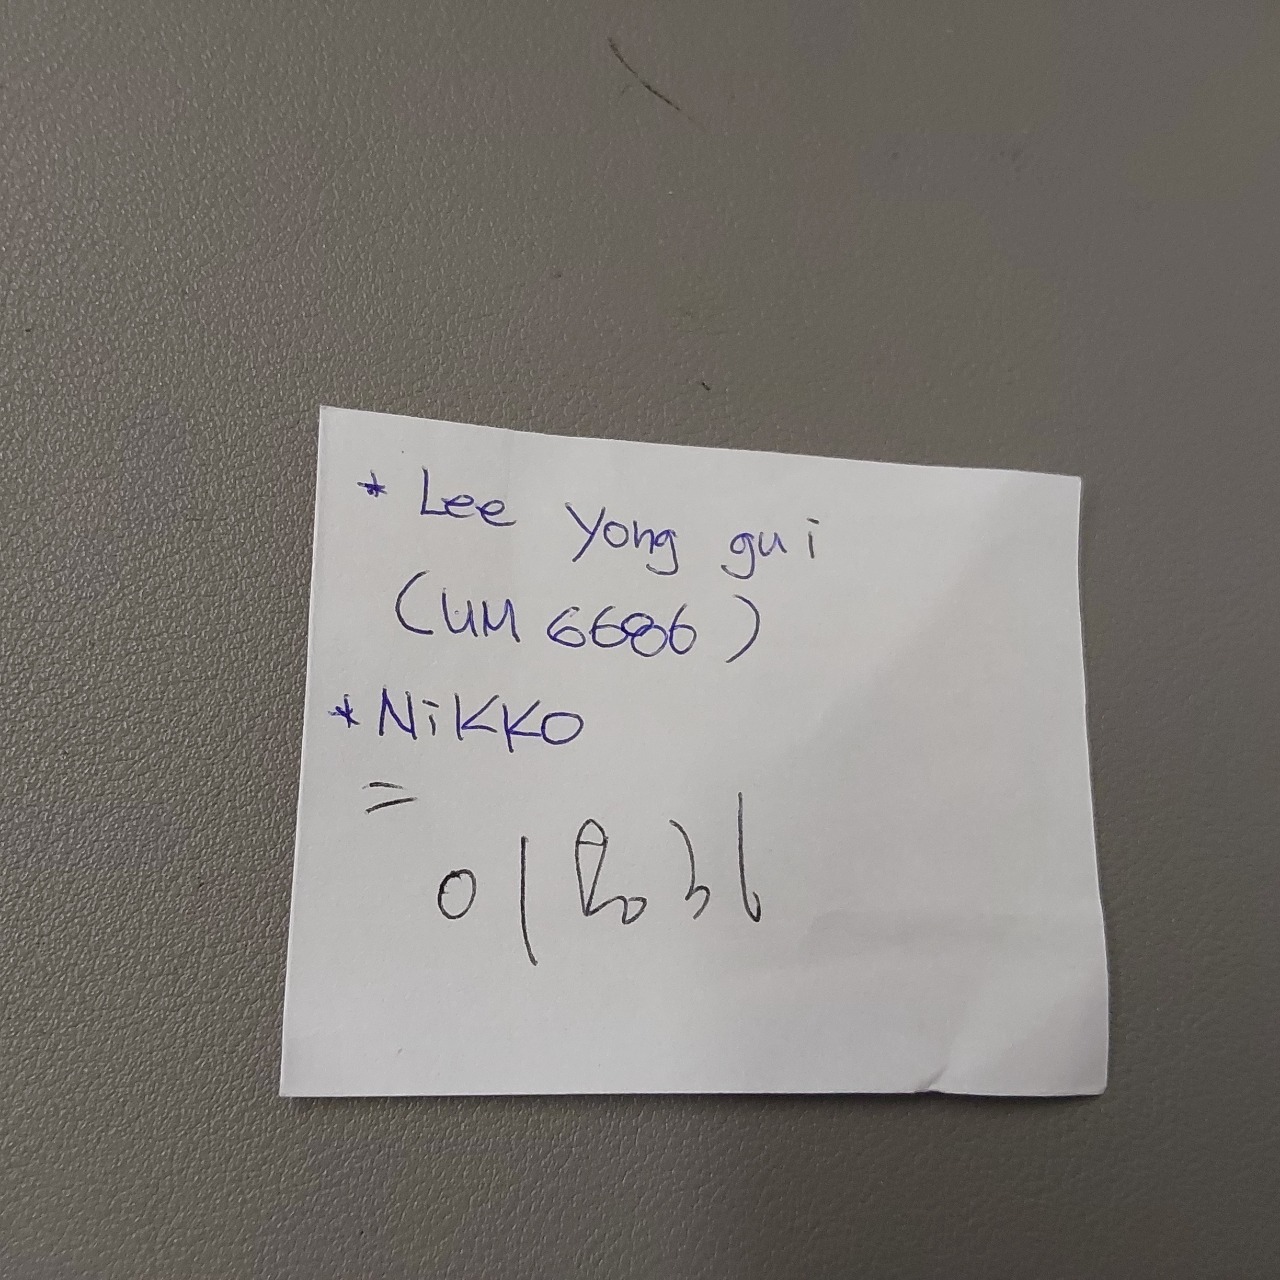 * Lee Yong gui
(UM 6686)
* NiKKO
=